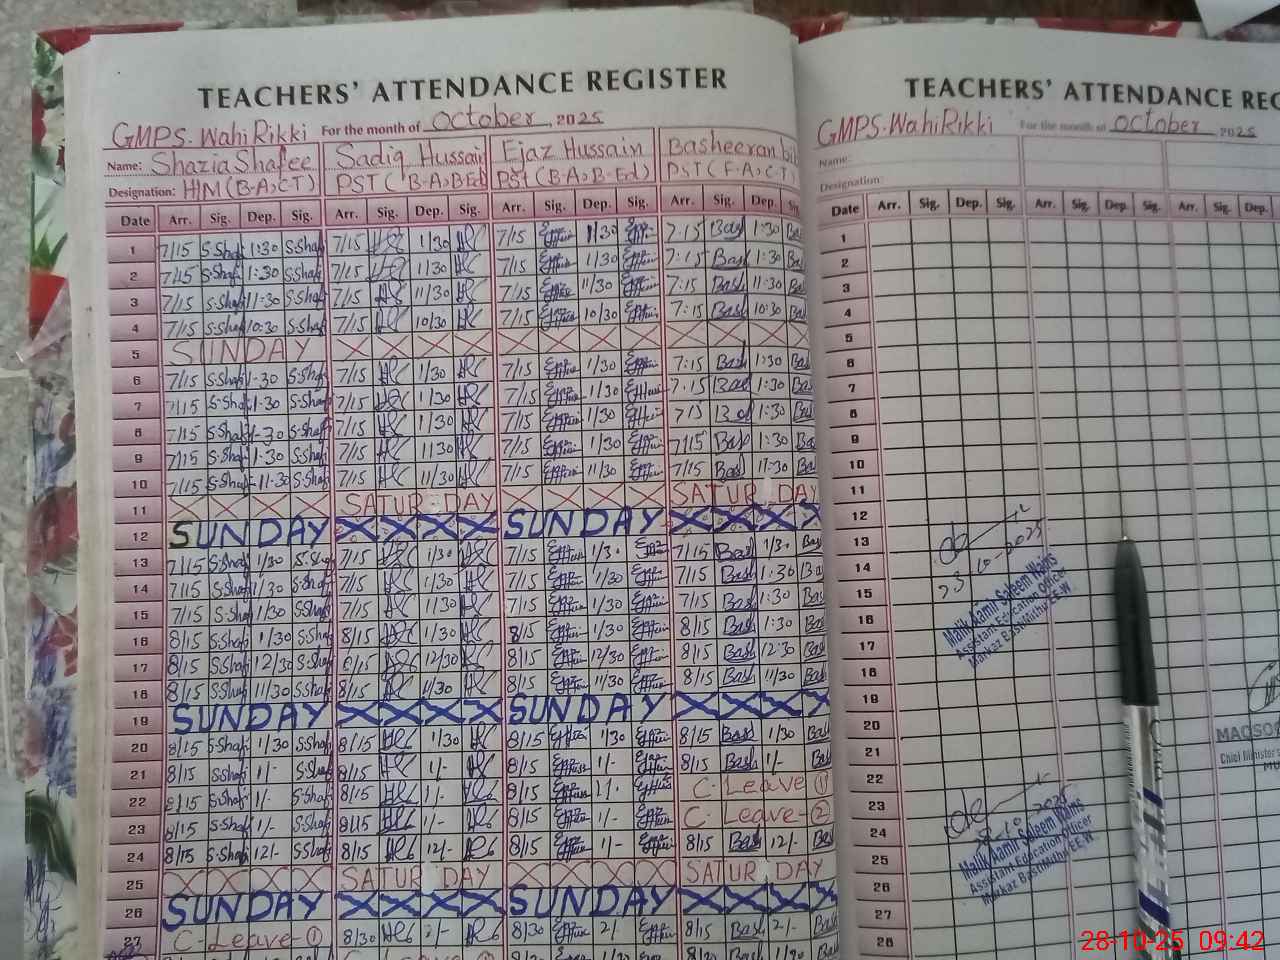 TEACHERS' ATTENDANCE REGISTER
GMPS. Wahi Rikki For the month of October, 2025
Name: Shazia Shafee Sadiq Hussain Ejaz Hussain Basheeran bib
Designation: H/M (B-A, C-T) PST ( B-A, B-Ed PSt (B-A, B-Ed) PST ( F-A, C-T)
Date Arr. Sig. Dep. Sig. Arr. Sig. Dep. Sig. Arr. Sig. Dep. Sig. Arr. Sig. Dep. Sig
1 7/15 S.Shaf 1:30 S.Shaf 7/15 1/30 7/15 1/30 7:15 Bash 1:30 Bas
2 7/15 S.Shaf 1:30 S.Shaf 7/15 1/30 7/15 1/30 7:15 Bash 1:30 Bas
3 7/15 S.Shaf 11:30 S.Shaf 7/15 11/30 7/15 11/30 7:15 Bash 11:30 Bas
4 7/15 S.Shaf 10:30 S.Shaf 7/15 10/30 7/15 10/30 7:15 Bash 10:30 Bas
5 SUNDAY
6 7/15 S.Shaf 1-30 S.Shaf 7/15 1/30 7/15 1/30 7:15 Bash 1:30 Bas
7 7/15 S.Shaf 1-30 S.Shaf 7/15 1/30 7/15 1/30 7:15 Bash 1:30 Bas
8 7/15 S.Shaf 1-30 S.Shaf 7/15 1/30 7/15 1/30 7/15 1:30 Bas
9 7/15 S.Shaf 1-30 S.Shaf 7/15 1/30 7/15 1/30 7/15 Bash 1:30 Bas
10 7/15 S.Shaf 11-30 S.Shaf 7/15 11/30 7/15 11/30 7/15 Bash 11:30 Bas
11 SATURDAY SATURDAY
12 SUNDAY SUNDAY
13 7/15 S.Shaf 1/30 S.Shaf 7/15 1/30 7/15 1/3. 7/15 Bash 1/3. Bas
14 7/15 S.Shaf 1/30 S.Shaf 7/15 1/30 7/15 1/30 7/15 Bash 1:30 Bas
15 7/15 S.Shaf 1/30 S.Shaf 7/15 1/30 7/15 1/30 7/15 Bash 1:30 Bas
16 8/15 S.Shaf 1/30 S.Shaf 8/15 1/30 8/15 1/30 8/15 Bash 1:30 Bas
17 8/15 S.Shaf 12/30 S.Shaf 8/15 12/30 8/15 12/30 8/15 Bash 12:30 Bas
18 8/15 S.Shaf 11/30 S.Shaf 8/15 11/30 8/15 11/30 8/15 Bash 11/30 Bas
19 SUNDAY SUNDAY
20 8/15 S.Shaf 1/30 S.Shaf 8/15 1/30 8/15 1/30 8/15 Bash 1/30 Bas
21 8/15 S.Shaf 1/- S.Shaf 8/15 1/- 8/15 1/- 8/15 Bash 1/- Bas
22 8/15 S.Shaf 1/- S.Shaf 8/15 1/- 8/15 C-Leave 1
23 8/15 S.Shaf 1/- S.Shaf 8/15 1/- 8/15 1/- C-Leave-2
24 8/15 S.Shaf 12/- S.Shaf 8/15 12/- 8/15 8/15 Bash 12/- Bas
25 SATURDAY SATURDAY
26 SUNDAY SUNDAY
27 C-Leave-1 8/30 2/- 8/30 2/- 8/15 Bash 2/- Bas
TEACHERS' ATTENDANCE REG
GMPS. Wahi Rikki For the month of October, 2025
Name:
Designation:
Date Arr. Sig. Dep. Sig. Arr. Sig. Dep. Sig. Arr. Sig. Dep.
1
2
3
4
5
6
7
8
9
10
11
12
13
14
15
16
17
18
19
20
21
22
23
24
25
26
27
28
23-10-2025
Malik Aamir Saleem Wains
Assistant Education Officer
Markaz Basti Mithu EE-W
MAQSOO
Chief Minister
Malik Aamir Saleem Wains
Assistant Education Officer
Markaz Basti Mithu EE-W
28-10-25 09:42